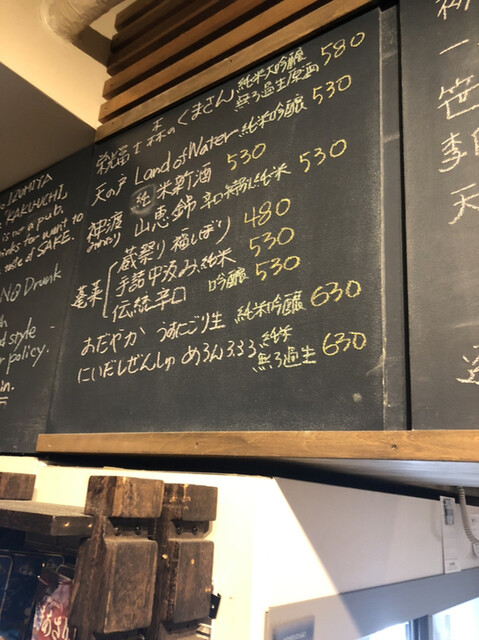 IZUMIYA
"KAKUHUCHI,
is not a pub.
drinks for want to
of SAKE.
NO Drunk
style
policy.
秋冨士 森のくまさん 純米大吟醸 無ろ過生原酒 580
天の戸 Land of Water 純米吟醸 530
純米新酒 530
神渡 みわたり 山恵錦 辛口特別純米 530
蓬莱 蔵祭り 福しぼり 480
手詰中汲み 純米 530
伝統辛口 吟醸 530
おだやか うすにごり生 純米吟醸 630
にいだしぜんしゅ めろん3.33 純米 無ろ過生 630
一
笹
李
天